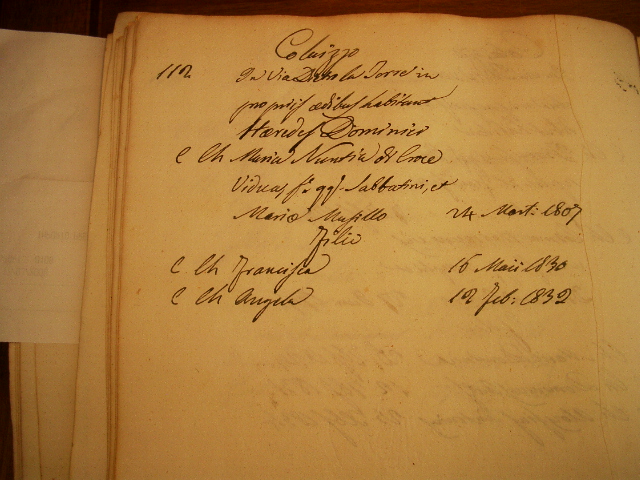 Coluzzo
112 In Via Dietro la Torre in
propriis ædibus habitant
Hæredes Dominici
C Ch Maria Nuntia di Croce
Vidua, fª qq. Sabbatini, et
Mariæ Musillo 24 Mart: 1807
Filie
C Ch Francisca 16 Maii 1830
C Ch Angela 12 Feb: 1832